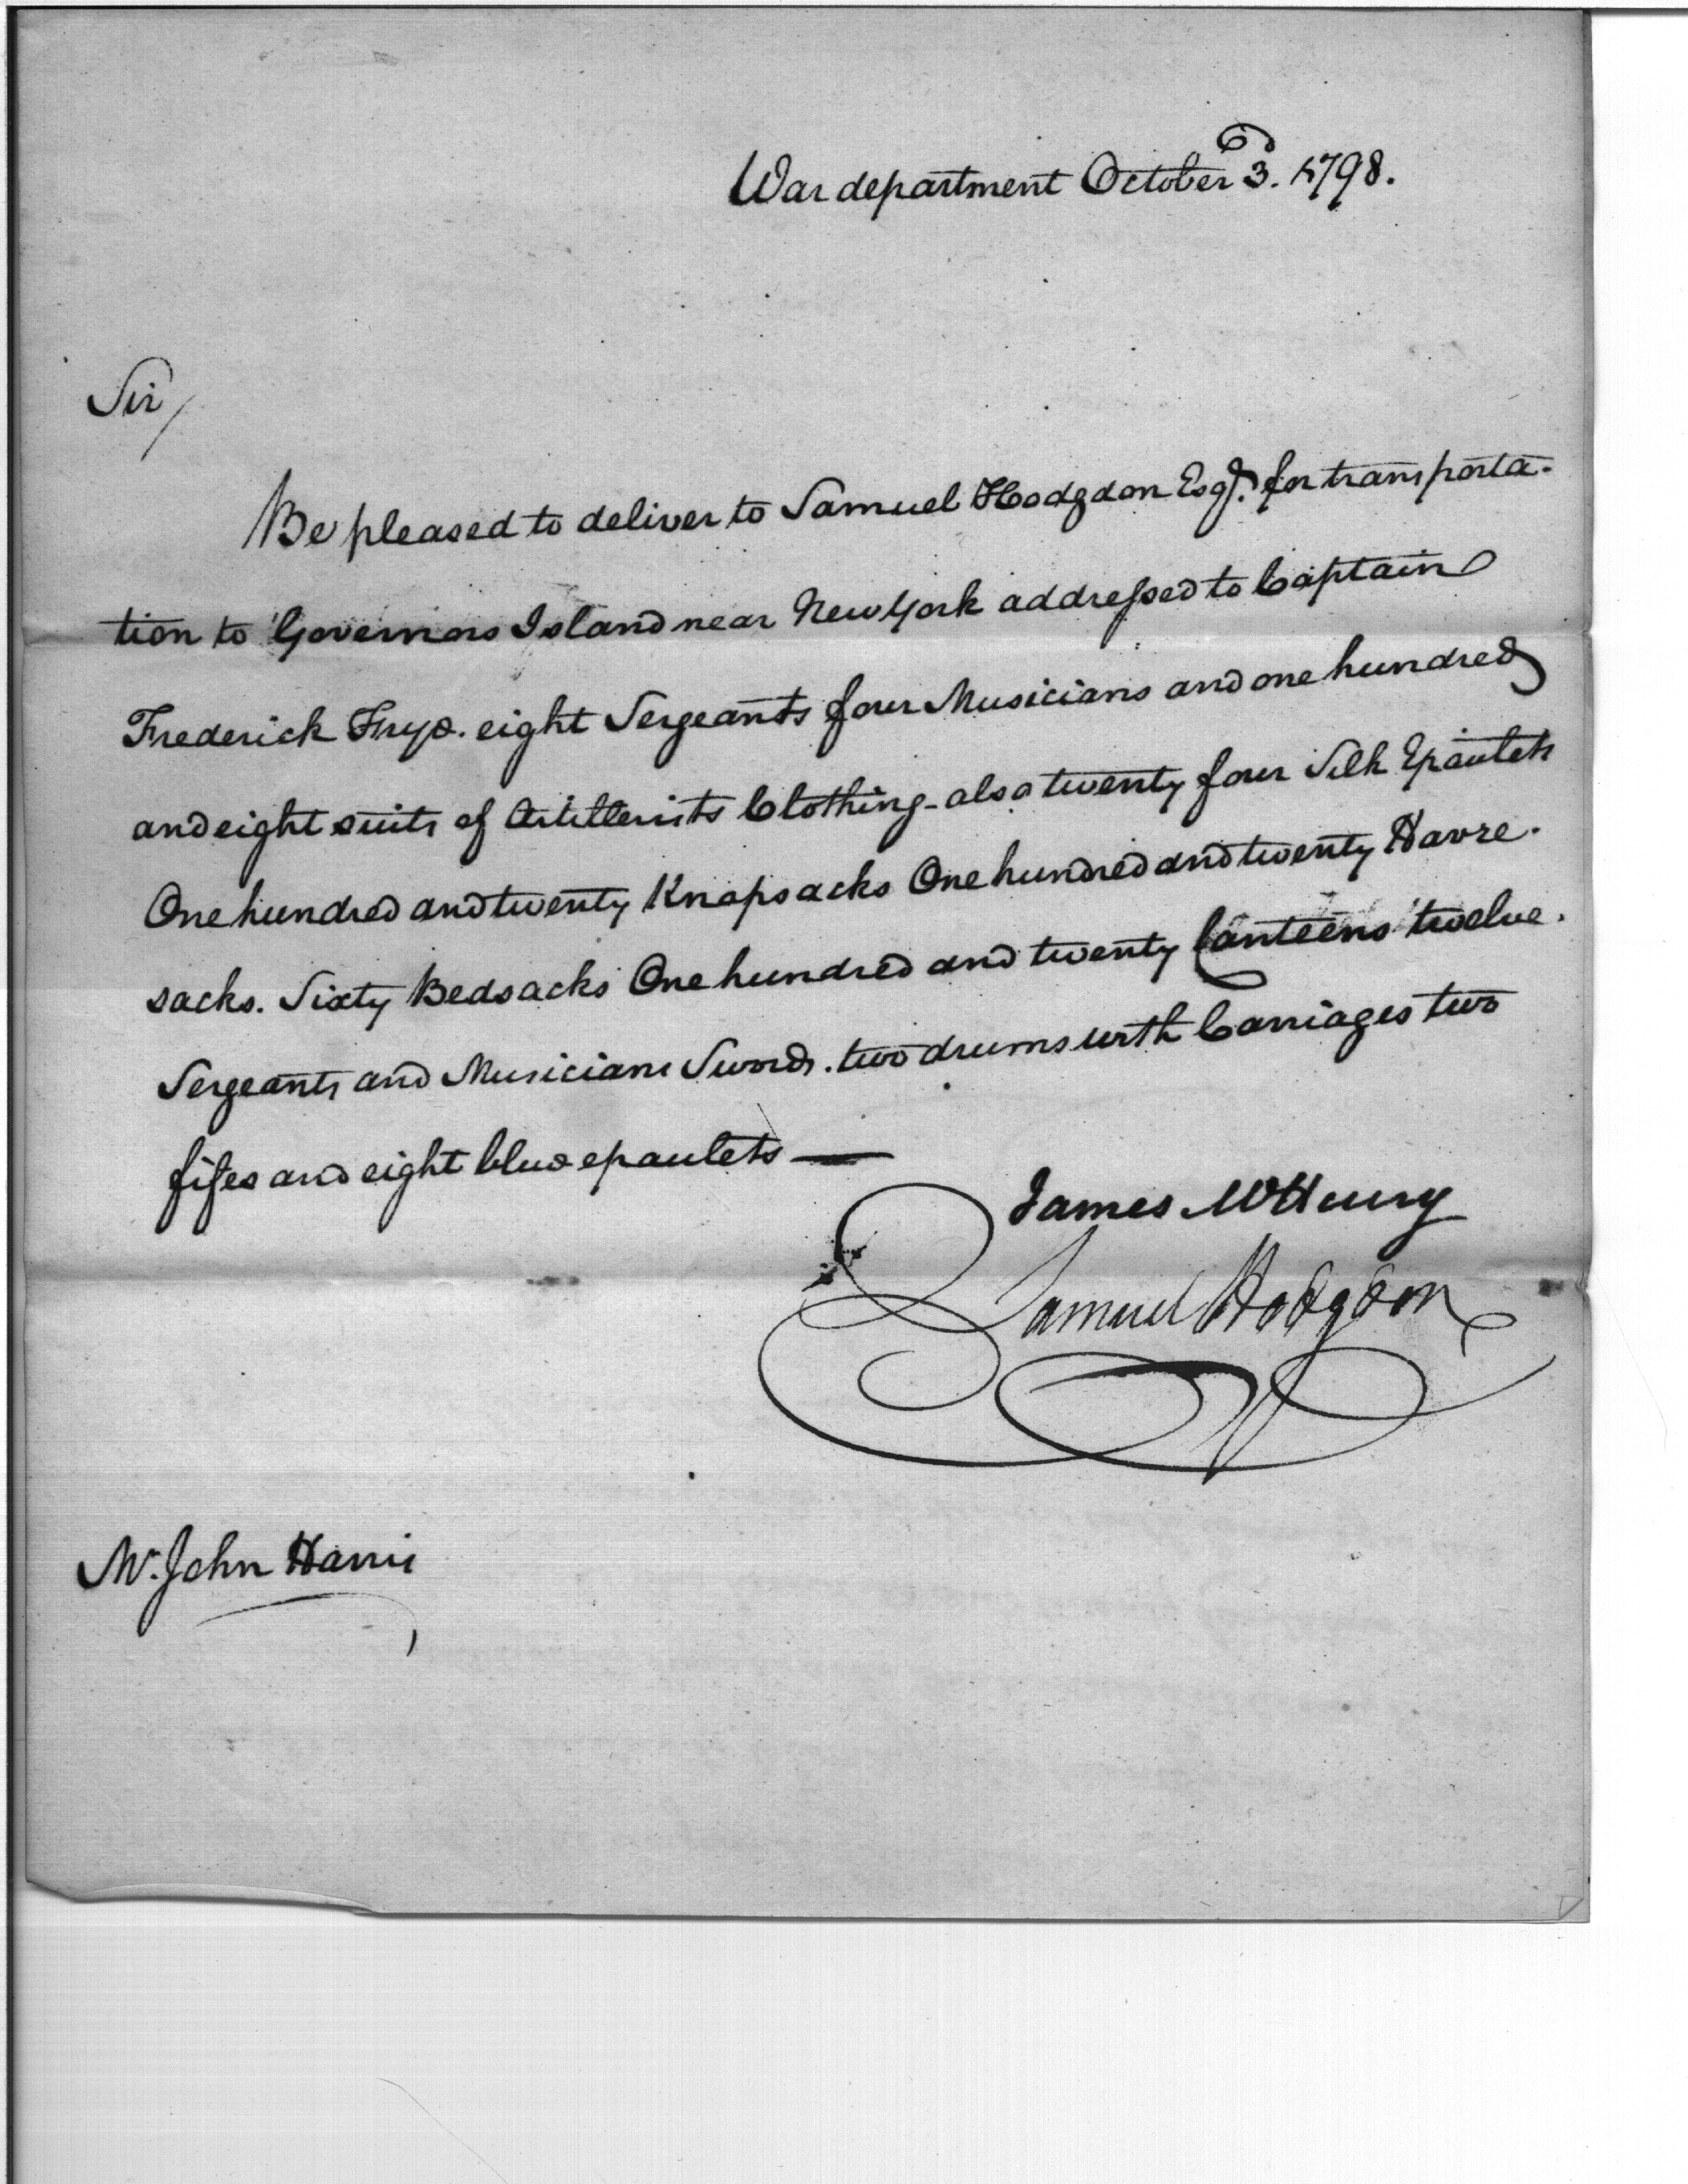 War department October 3d. 1798.
Sir/
Be pleased to deliver to Samuel Hodgdon Esqr. for transporta-
tion to Governors Island near New York addressed to Captain
Frederick Frye. eight Sergeants four Musicians and one hundred
and eight suits of Artillerists Clothing - also twenty four Silk Epaulets
One hundred and twenty Knapsacks One hundred and twenty Havre-
sacks. Sixty Bedsacks One hundred and twenty Canteens twelve
Sergeants and Musicians Swords. two drums with Carriages two
fifes and eight blue epaulets —
James McHenry
Samuel Hodgdon
Mr. John Harris